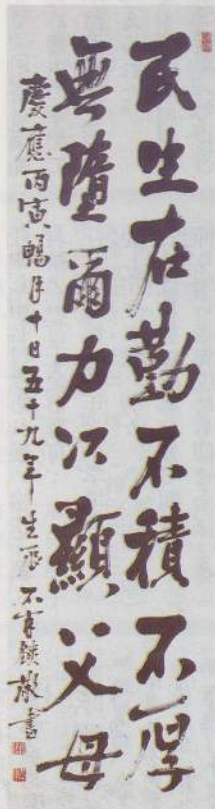 民生在勤不積不厚
無墮爾力以顯父母
慶應丙寅暢月十日五十九年生辰